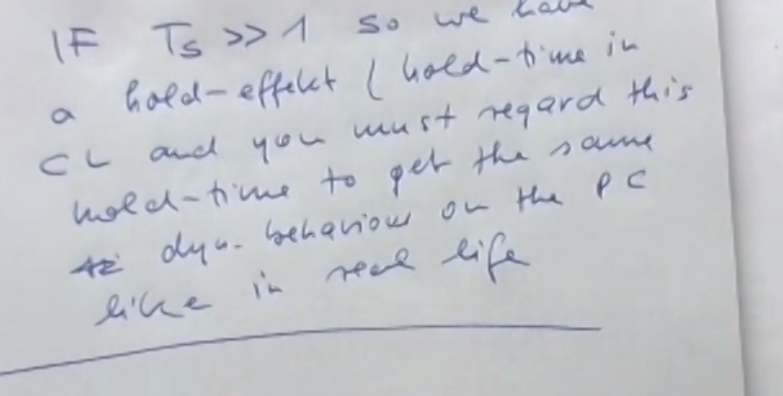 IF Ts >> 1 so we have
a hold-effekt ( hold-time in
CL and you must regard this
hold-time to get the same
dyn. behaviour on the PC
like in real life